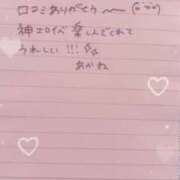 口コミありがとう〜〜
神エロイベ楽しんでくれて
うれしい!!!
あかね